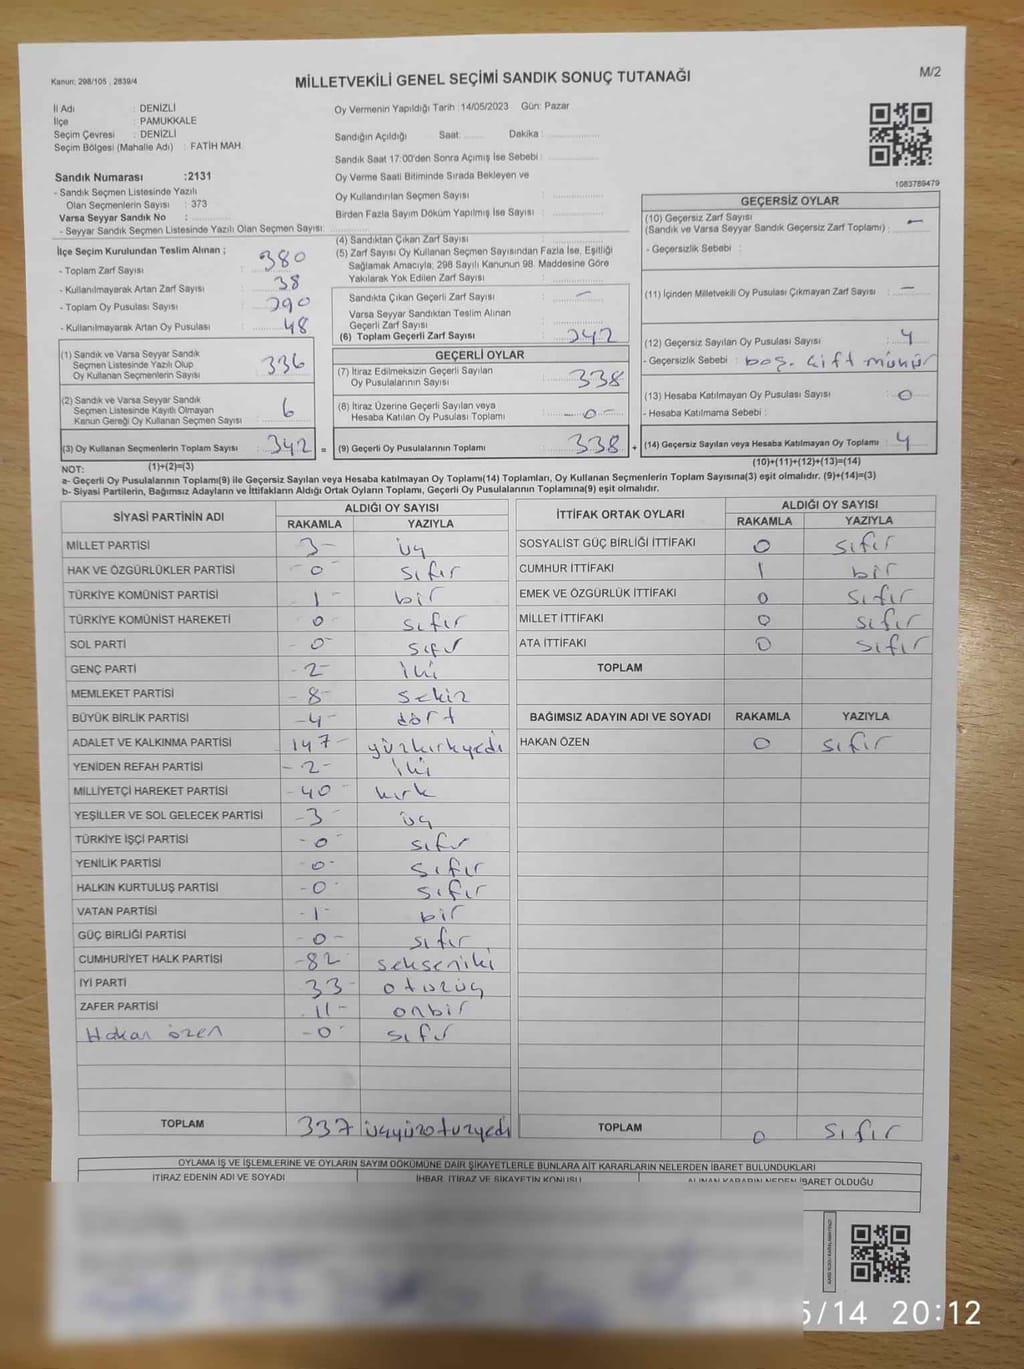 Kanun: 298/105 , 2839/4
MİLLETVEKİLİ GENEL SEÇİMİ SANDIK SONUÇ TUTANAĞI
M/2
İl Adı : DENİZLİ
İlçe : PAMUKKALE
Seçim Çevresi : DENİZLİ
Seçim Bölgesi (Mahalle Adı) : FATİH MAH.
Oy Vermenin Yapıldığı Tarih : 14/05/2023 Gün: Pazar
Sandığın Açıldığı Saat: Dakika :
Sandık Saat 17:00'den Sonra Açımış İse Sebebi :
Oy Verme Saati Bitiminde Sırada Bekleyen ve
Oy Kullandırılan Seçmen Sayısı :
Birden Fazla Sayım Döküm Yapılmış İse Sayısı :
1083789479
Sandık Numarası :2131
- Sandık Seçmen Listesinde Yazılı
Olan Seçmenlerin Sayısı : 373
Varsa Seyyar Sandık No :
- Seyyar Sandık Seçmen Listesinde Yazılı Olan Seçmen Sayısı:
İlçe Seçim Kurulundan Teslim Alınan ;
- Toplam Zarf Sayısı : 380
- Kullanılmayarak Artan Zarf Sayısı : 38
- Toplam Oy Pusulası Sayısı : 390
- Kullanılmayarak Artan Oy Pusulası : 48
(1) Sandık ve Varsa Seyyar Sandık
Seçmen Listesinde Yazılı Olup
Oy Kullanan Seçmenlerin Sayısı : 336
(2) Sandık ve Varsa Seyyar Sandık
Seçmen Listesinde Kayıtlı Olmayan
Kanun Gereği Oy Kullanan Seçmen Sayısı : 6
(3) Oy Kullanan Seçmenlerin Toplam Sayısı : 342
(1)+(2)=(3)
(4) Sandıktan Çıkan Zarf Sayısı :
(5) Zarf Sayısı Oy Kullanan Seçmen Sayısından Fazla İse, Eşitliği
Sağlamak Amacıyla; 298 Sayılı Kanunun 98. Maddesine Göre
Yakılarak Yok Edilen Zarf Sayısı :
Sandıkta Çıkan Geçerli Zarf Sayısı : -
Varsa Seyyar Sandıktan Teslim Alınan
Geçerli Zarf Sayısı :
(6) Toplam Geçerli Zarf Sayısı : 342
GEÇERLİ OYLAR
(7) İtiraz Edilmeksizin Geçerli Sayılan
Oy Pusulalarının Sayısı : 338
(8) İtiraz Üzerine Geçerli Sayılan veya
Hesaba Katılan Oy Pusulası Toplamı : -0-
= (9) Geçerli Oy Pusulalarının Toplamı : 338
GEÇERSİZ OYLAR
(10) Geçersiz Zarf Sayısı
(Sandık ve Varsa Seyyar Sandık Geçersiz Zarf Toplamı) : -
- Geçersizlik Sebebi :
(11) İçinden Milletvekili Oy Pusulası Çıkmayan Zarf Sayısı : -
(12) Geçersiz Sayılan Oy Pusulası Sayısı : 4
- Geçersizlik Sebebi : boş. çift mühür
(13) Hesaba Katılmayan Oy Pusulası Sayısı : 0
- Hesaba Katılmama Sebebi :
+ (14) Geçersiz Sayılan veya Hesaba Katılmayan Oy Toplamı : 4
(10)+(11)+(12)+(13)=(14)
NOT:
a- Geçerli Oy Pusulalarının Toplamı(9) ile Geçersiz Sayılan veya Hesaba Katılmayan Oy Toplamı(14) Toplamları, Oy Kullanan Seçmenlerin Toplam Sayısına(3) eşit olmalıdır. (9)+(14)=(3)
b- Siyasi Partilerin, Bağımsız Adayların ve İttifakların Aldığı Ortak Oyların Toplamı, Geçerli Oy Pusulalarının Toplamına(9) eşit olmalıdır.
SİYASİ PARTİNİN ADI ALDIĞI OY SAYISI
RAKAMLA YAZIYLA
MİLLET PARTİSİ 3- üç
HAK VE ÖZGÜRLÜKLER PARTİSİ -0- sıfır
TÜRKİYE KOMÜNİST PARTİSİ 1- bir
TÜRKİYE KOMÜNİST HAREKETİ -0- sıfır
SOL PARTİ -0- sıfır
GENÇ PARTİ -2- iki
MEMLEKET PARTİSİ -8- sekiz
BÜYÜK BİRLİK PARTİSİ -4- dört
ADALET VE KALKINMA PARTİSİ 147- yüzkırkyedi
YENİDEN REFAH PARTİSİ -2- iki
MİLLİYETÇİ HAREKET PARTİSİ -40- kırk
YEŞİLLER VE SOL GELECEK PARTİSİ -3- üç
TÜRKİYE İŞÇİ PARTİSİ -0- sıfır
YENİLİK PARTİSİ -0- sıfır
HALKIN KURTULUŞ PARTİSİ -0- sıfır
VATAN PARTİSİ -1- bir
GÜÇ BİRLİĞİ PARTİSİ -0- sıfır
CUMHURİYET HALK PARTİSİ -82- sekseniki
İYİ PARTİ 33- otuzüç
ZAFER PARTİSİ 11- onbir
Hakan özen -0- sıfır
TOPLAM 337 üçyüzotuzyedi
İTTİFAK ORTAK OYLARI ALDIĞI OY SAYISI
RAKAMLA YAZIYLA
SOSYALİST GÜÇ BİRLİĞİ İTTİFAKI 0 sıfır
CUMHUR İTTİFAKI 1 bir
EMEK VE ÖZGÜRLÜK İTTİFAKI 0 sıfır
MİLLET İTTİFAKI 0 sıfır
ATA İTTİFAKI 0 sıfır
TOPLAM
BAĞIMSIZ ADAYIN ADI VE SOYADI RAKAMLA YAZIYLA
HAKAN ÖZEN 0 sıfır
TOPLAM 0 sıfır
OYLAMA İŞ VE İŞLEMLERİNE VE OYLARIN SAYIM DÖKÜMÜNE DAİR ŞİKAYETLERLE BUNLARA AİT KARARLARIN NELERDEN İBARET BULUNDUKLARI
İTİRAZ EDENİN ADI VE SOYADI İHBAR, İTİRAZ VE ŞİKAYETİN KONUSU ALINAN KARARIN NEDEN İBARET OLDUĞU
5/14 20:12